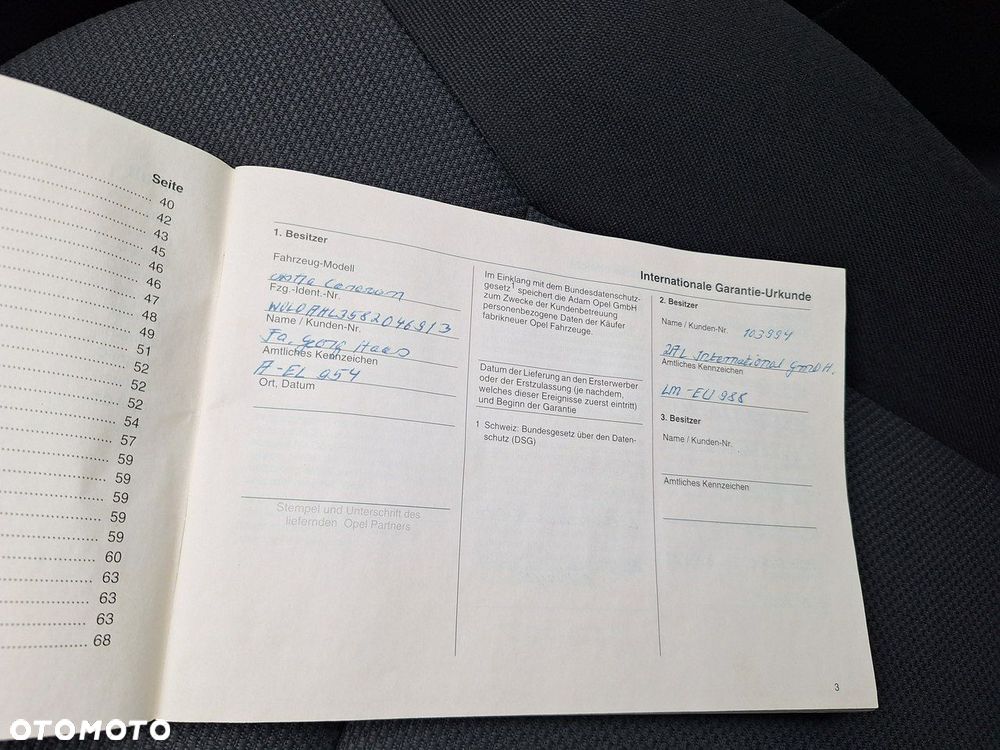 Seite
40
42
43
45
46
46
47
48
49
51
52
52
52
54
57
59
59
59
59
59
60
63
63
63
68
Internationale Garantie-Urkunde
1. Besitzer
Fahrzeug-Modell
Fzg.-Ident.-Nr.
Name / Kunden-Nr.
Fa. Georg Haas
Amtliches Kennzeichen
A-EL 954
Ort, Datum
Stempel und Unterschrift des
liefernden Opel Partners
Im Einklang mit dem Bundesdatenschutz-
gesetz¹ speichert die Adam Opel GmbH
zum Zwecke der Kundenbetreuung
personenbezogene Daten der Käufer
fabrikneuer Opel Fahrzeuge.
Datum der Lieferung an den Ersterwerber
oder der Erstzulassung (je nachdem,
welches dieser Ereignisse zuerst eintritt)
und Beginn der Garantie
1 Schweiz: Bundesgesetz über den Daten-
schutz (DSG)
2. Besitzer
Name / Kunden-Nr. 103994
International GmbH.
Amtliches Kennzeichen
LM-EU 988
3. Besitzer
Name / Kunden-Nr.
Amtliches Kennzeichen
3
OTOMOTO